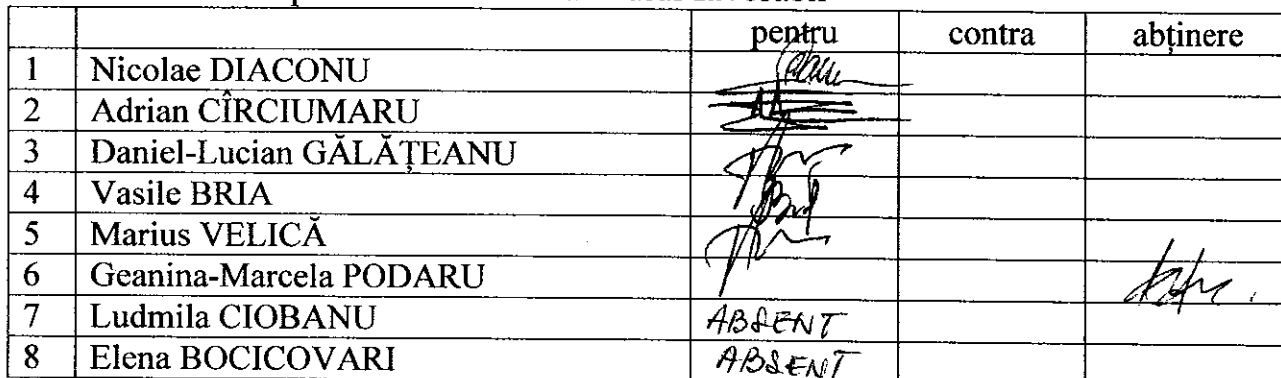 pentru contra abținere
1 Nicolae DIACONU
2 Adrian CÎRCIUMARU
3 Daniel-Lucian GĂLĂȚEANU
4 Vasile BRIA
5 Marius VELICĂ
6 Geanina-Marcela PODARU
7 Ludmila CIOBANU ABSENT
8 Elena BOCICOVARI ABSENT